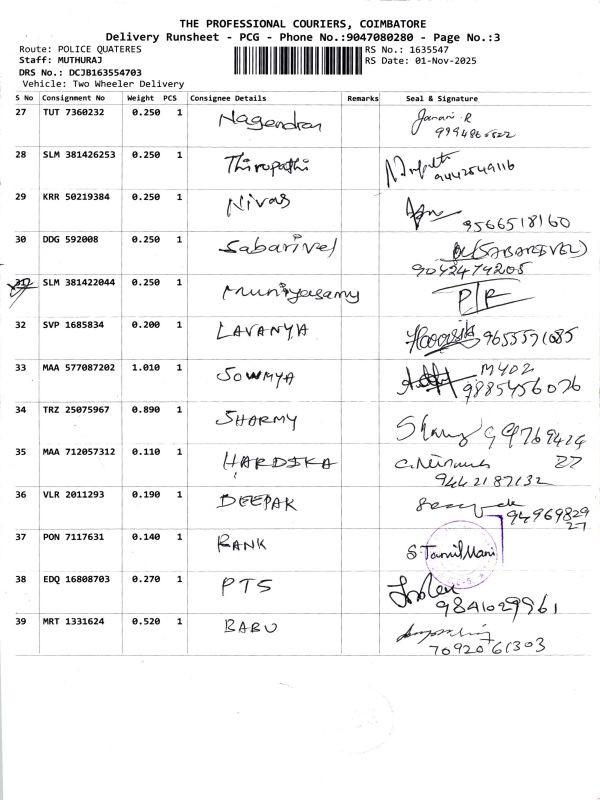 THE PROFESSIONAL COURIERS, COIMBATORE
Delivery Runsheet - PCG - Phone No.:9047080280 - Page No.:3
Route: POLICE QUATERES RS No.: 1635547
Staff: MUTHURAJ RS Date: 01-Nov-2025
DRS No.: DCJB163554703
Vehicle: Two Wheeler Delivery
S No Consignment No Weight PCS Consignee Details Remarks Seal & Signature
27 TUT 7360232 0.250 1 Nagendran Janani R
28 SLM 381426253 0.250 1 Thirupathi 9442549116
29 KRR 50219384 0.250 1 Nivas 9566518160
30 DDG 592008 0.250 1 Sabarivel (SABARIVEL)
9042474205
SLM 381422044 0.250 1 Muniyasamy P/R
32 SVP 1685834 0.200 1 LAVANYA 9655571085
33 MAA 577087202 1.010 1 SOWMYA M402
9885456076
34 TRZ 25075967 0.890 1 SHARMY
35 MAA 712057312 0.110 1 HARDIKA
9442187132
36 VLR 2011293 0.190 1 DEEPAK
94969829
27
37 PON 7117631 0.140 1 RANK S. Tamil Mani
38 EDQ 16808703 0.270 1 PTS
9841029961
39 MRT 1331624 0.520 1 BABU
7092061303